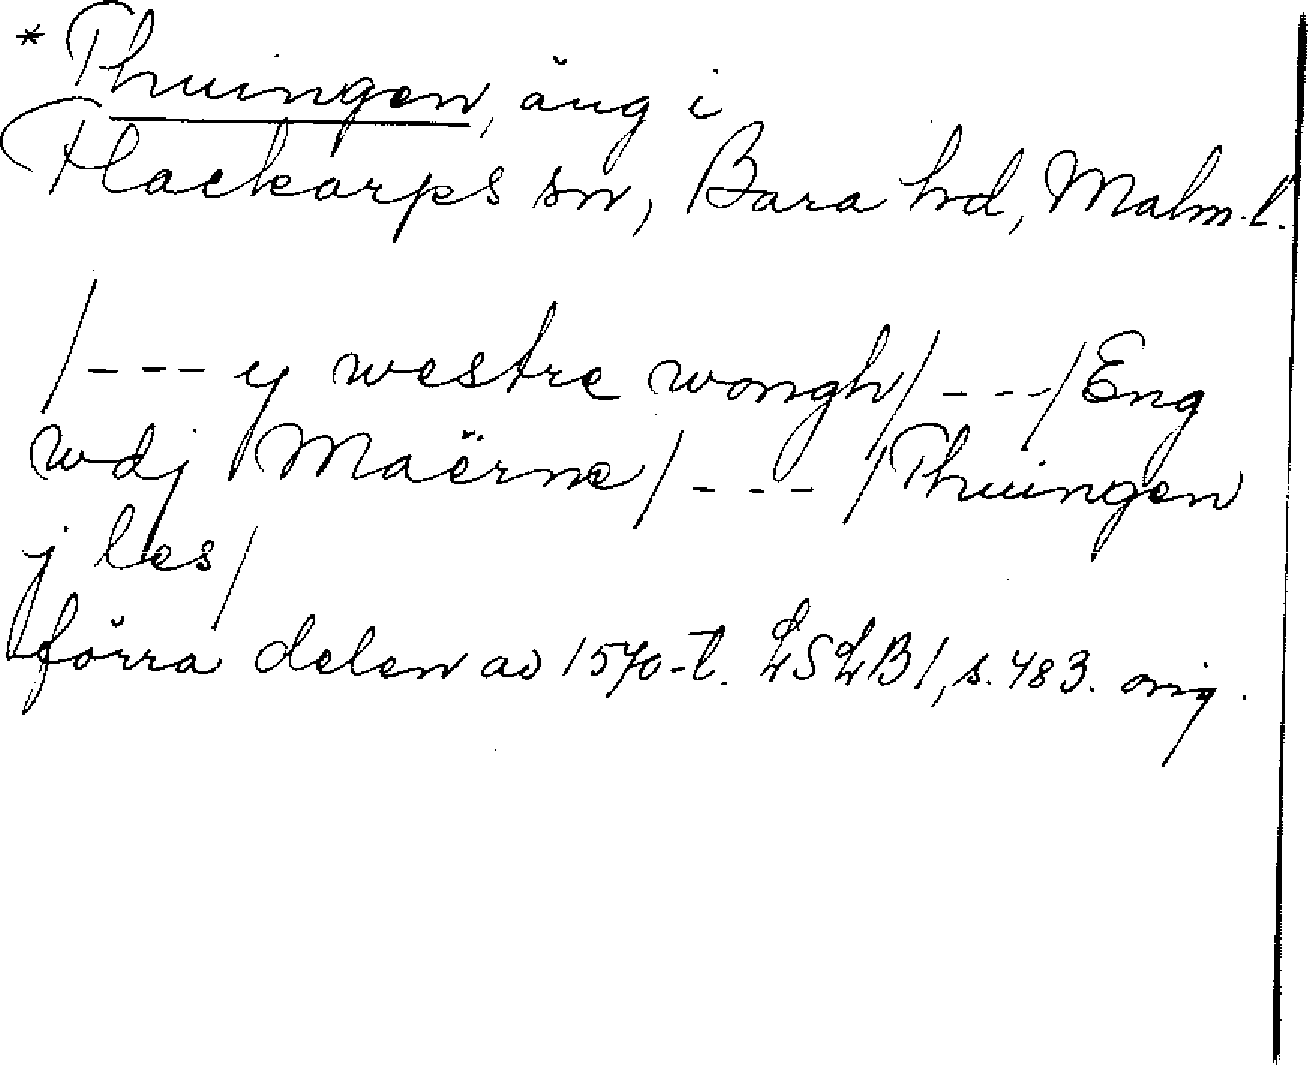 * Thuingen, äng i
Flackarps sn, Bara hd, Malm.l.
/--- y westre wongh/---/Eng
wdj Maërne/---/Thuingen
j les/
förra delen av 1570-t. LSLB1, s. 483. orig.